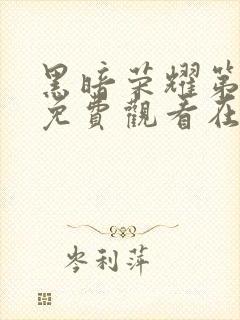 黑暗荣耀第
免費觀看在
岑利萍